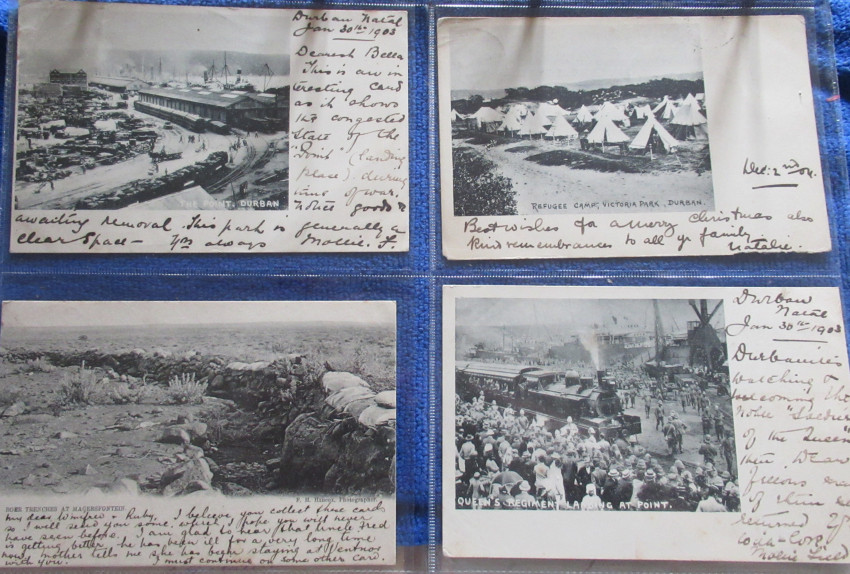 Durban Natal
Jan 30th 1903
Dearest Bella
This is an in
teresting card
as it shows
the congested
state of the
"Point" (landing
place) during
time of war.
Note goods
awaiting removal. This park is generally a
clear space — Yrs always Mollie. F.
THE POINT, DURBAN
REFUGEE CAMP, VICTORIA PARK, DURBAN.
Dec: 2nd 04.
Best wishes for a merry Christmas also
kind remembrances to all yr family
Natalie.
F. H. Hancox, Photographer.
BOER TRENCHES AT MAGERSFONTEIN
My dear Winifred & Ruby, I believe you collect these cards
so I will send you some, which I hope you will never
have seen before. I am glad to hear that Uncle Fred
is getting better, he has been ill for a very long time
now, mother tells me she has been staying at Ventnor
with you. I must continue on some other card.
Durban
Natal
Jan 30th 1903
Durbanites
watching &
welcoming the
noble
of the Queen"
then. Dear
of them
returned
Mollie Field
QUEEN'S REGIMENT LANDING AT POINT.